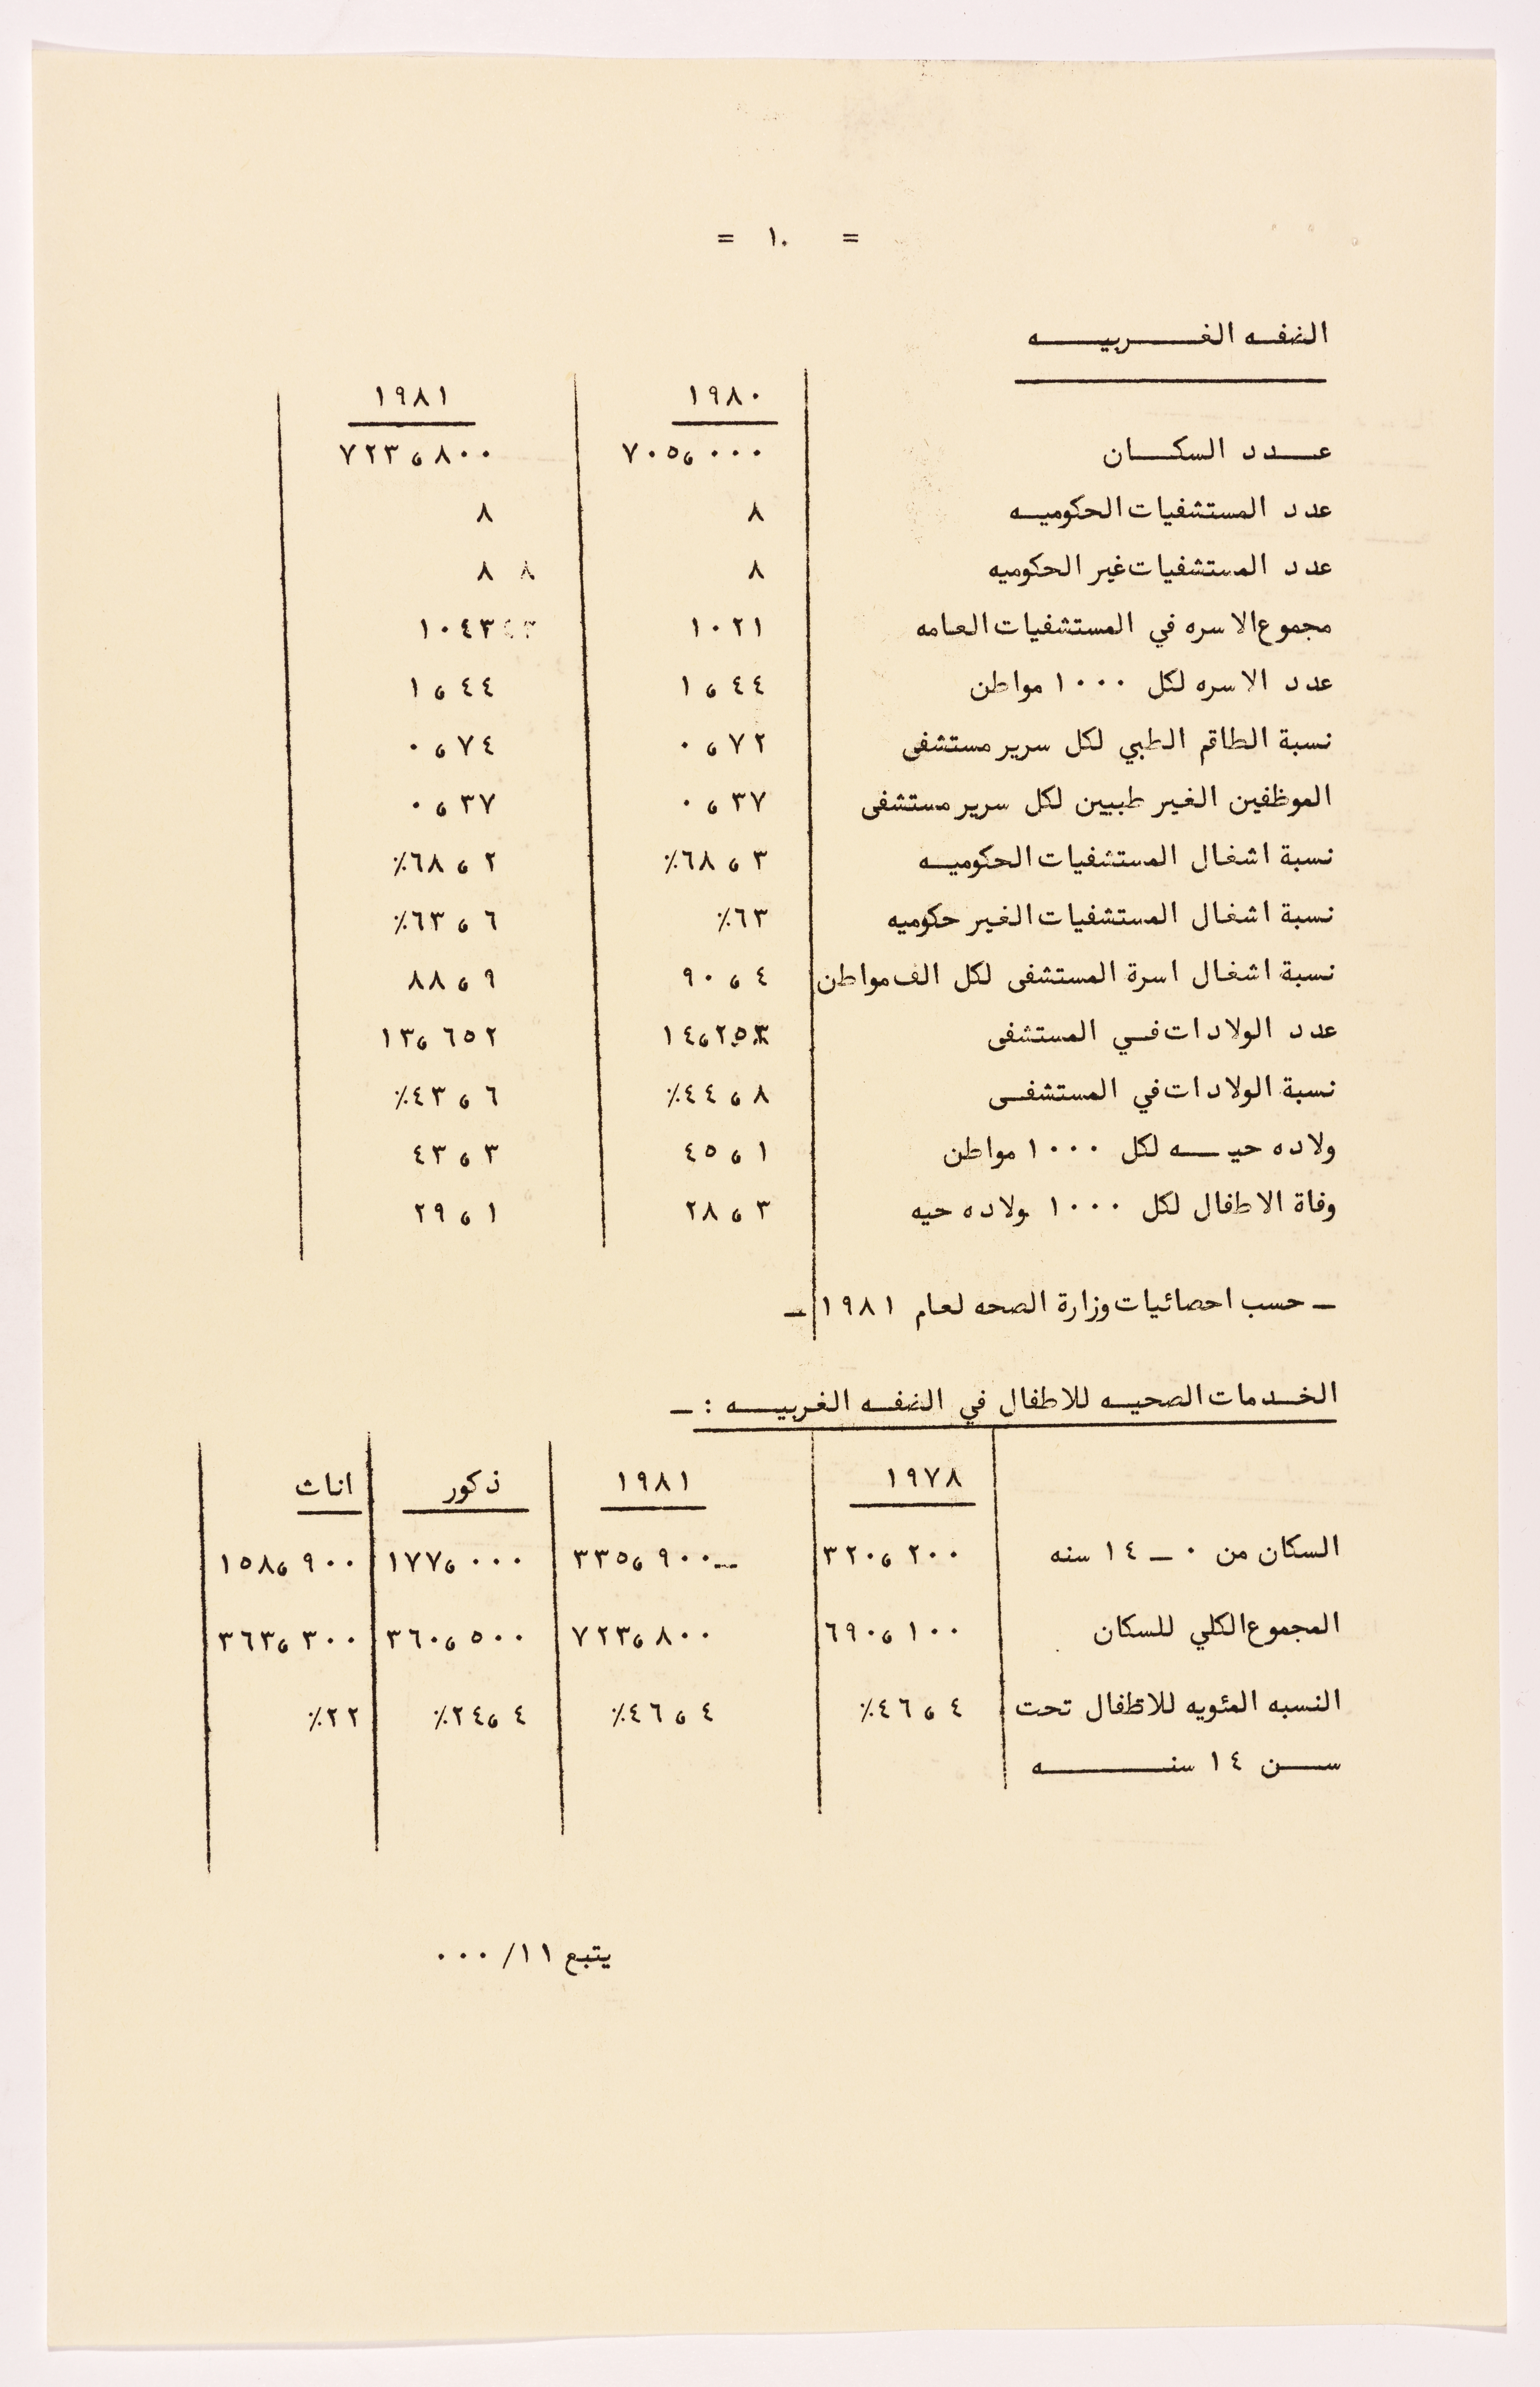 = ١٠ =
الضفه الغربيه
١٩٨٠ ١٩٨١
عدد السكان ٧٠٥,٠٠٠ ٧٢٣,٨٠٠
عدد المستشفيات الحكوميه ٨ ٨
عدد المستشفيات غير الحكوميه ٨ ٨
مجموع الاسره في المستشفيات العامه ١٠٢١ ١٠٤٣
عدد الاسره لكل ١٠٠٠ مواطن ١,٤٤ ١,٤٤
نسبة الطاقم الطبي لكل سرير مستشفى ٠,٧٢ ٠,٧٤
الموظفين الغير طبيين لكل سرير مستشفى ٠,٣٧ ٠,٣٧
نسبة اشغال المستشفيات الحكوميه ٦٨,٣٪ ٦٨,٢٪
نسبة اشغال المستشفيات الغير حكوميه ٦٣٪ ٦٣,٦٪
نسبة اشغال اسرة المستشفى لكل الف مواطن ٩٠,٤ ٨٨,٩
عدد الولادات في المستشفى ١٤,٢٥٣ ١٣,٦٥٢
نسبة الولادات في المستشفى ٤٤,٨٪ ٤٣,٦٪
ولاده حيه لكل ١٠٠٠ مواطن ٤٥,١ ٤٣,٣
وفاة الاطفال لكل ١٠٠٠ ولاده حيه ٢٨,٣ ٢٩,١
ـ حسب احصائيات وزارة الصحه لعام ١٩٨١ ـ
الخدمات الصحيه للاطفال في الضفه الغربيه : ـ
١٩٧٨ ١٩٨١ ذكور اناث
السكان من ٠ ـ ١٤ سنه ٣٢٠,٢٠٠ ٣٣٥,٩٠٠ ١٧٧,٠٠٠ ١٥٨,٩٠٠
المجموع الكلي للسكان ٦٩٠,١٠٠ ٧٢٣,٨٠٠ ٣٦٠,٥٠٠ ٣٦٣,٣٠٠
النسبه المئويه للاطفال تحت ٤٦,٤٪ ٤٦,٤٪ ٢٤,٤٪ ٢٢٪
سن ١٤ سنه
يتبع ١١/ ٠٠٠